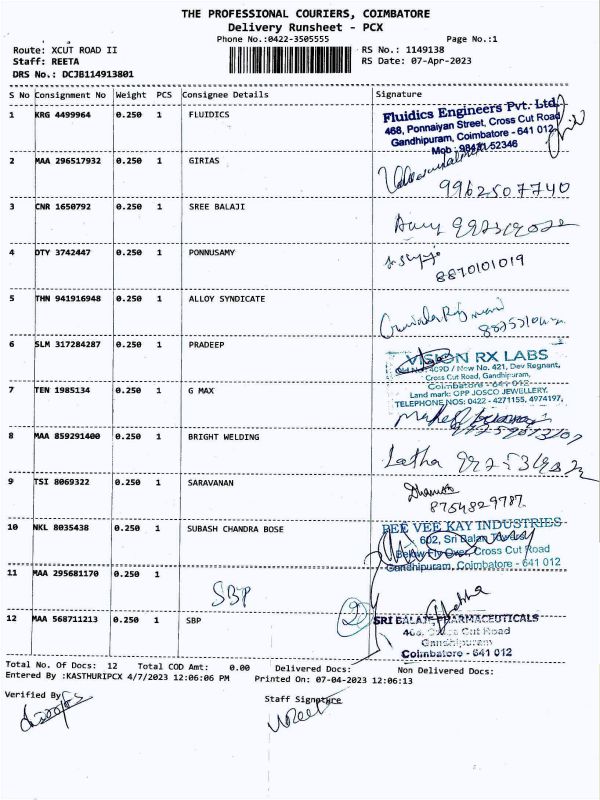 THE PROFESSIONAL COURIERS, COIMBATORE
Delivery Runsheet - PCX
Phone No.:0422-3505555 Page No.:1
Route: XCUT ROAD II RS No.: 1149138
Staff: REETA RS Date: 07-Apr-2023
DRS No.: DCJB114913801
S No Consignment No Weight PCS Consignee Details Signature
1 KRG 4499964 0.250 1 FLUIDICS
Fluidics Engineers Pvt. Ltd
468, Ponnaiyan Street, Cross Cut Road
Gandhipuram, Coimbatore - 641 012
Mob : 98421 52346
2 MAA 296517932 0.250 1 GIRIAS
9962507740
3 CNR 1650792 0.250 1 SREE BALAJI
4 DTY 3742447 0.250 1 PONNUSAMY
8870101019
5 THN 941916948 0.250 1 ALLOY SYNDICATE
6 SLM 317284287 0.250 1 PRADEEP
VISION RX LABS
409D / New No. 421, Dev Regnant,
Cross Cut Road, Gandhipuram,
Coimbatore - 641 012
Land mark: OPP JOSCO JEWELLERY,
TELEPHONE NOS: 0422 - 4271155, 4974197,
7 TEN 1985134 0.250 1 G MAX
8 MAA 859291400 0.250 1 BRIGHT WELDING
Latha
9 TSI 8069322 0.250 1 SARAVANAN
8754829787
10 NKL 8035438 0.250 1 SUBASH CHANDRA BOSE
BEE VEE KAY INDUSTRIES
602, Sri Balan Towers
Below Fly Over, Cross Cut Road
Gandhipuram, Coimbatore - 641 012
11 MAA 295681170 0.250 1
SBP
12 MAA 568711213 0.250 1 SBP
2
SRI BALAJI PHARMACEUTICALS
Cross Cut Road
Gandhipuram
Coimbatore - 641 012
Total No. Of Docs: 12 Total COD Amt: 0.00 Delivered Docs: Non Delivered Docs:
Entered By :KASTHURIPCX 4/7/2023 12:06:06 PM Printed On: 07-04-2023 12:06:13
Verified By
Staff Signature